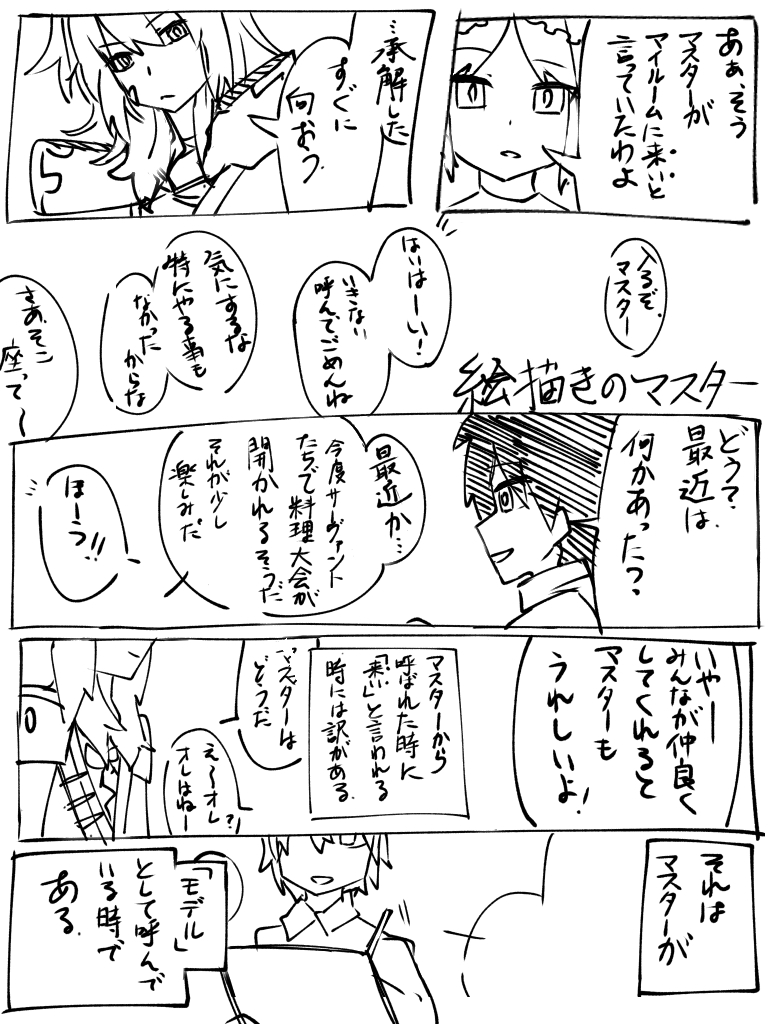 あぁ、そう
マスターが
マイルームに来いと
言っていたわよ
…承解した
すぐに
向おう.
入るぞ.
マスター
はいはーい!
いきない
呼んでごめんね
気にするな
特にやる事も
なかった
からな
さあ、そこ
座って〜
絵描きのマスター
どう?
最近は.
何かあった?
最近か…
今度サーヴァント
たちで料理大会が
開かれるそうだ
それが少し
楽しみだ
ほーう!!
いやー
みんなが仲良く
してくれると
マスターも
うれしいよ!
マスターから
呼ばれた時に
「来い」と言われる
時には訳がある.
マスターは
どうだ
え〜オレ?
オレはねー
それは
マスターが
「モデル」
として呼んで
いる時で
ある.